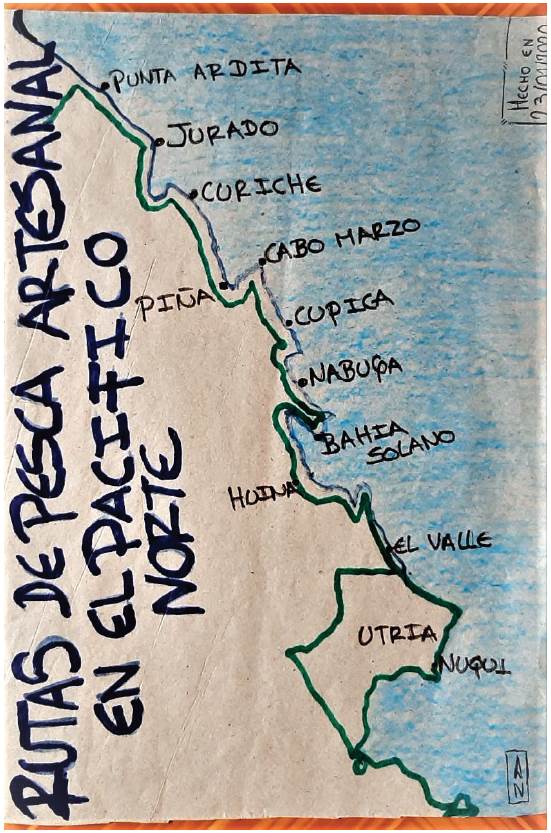 RUTAS DE PESCA ARTESANAL
EN EL PACIFICO
NORTE
HECHO EN
PUNTA ARDITA
JURADO
CURICHE
CABO MARZO
PIÑA
CUPICA
NABUGA
BAHIA
SOLANO
HUINA
EL VALLE
UTRIA
NUQUI
AN